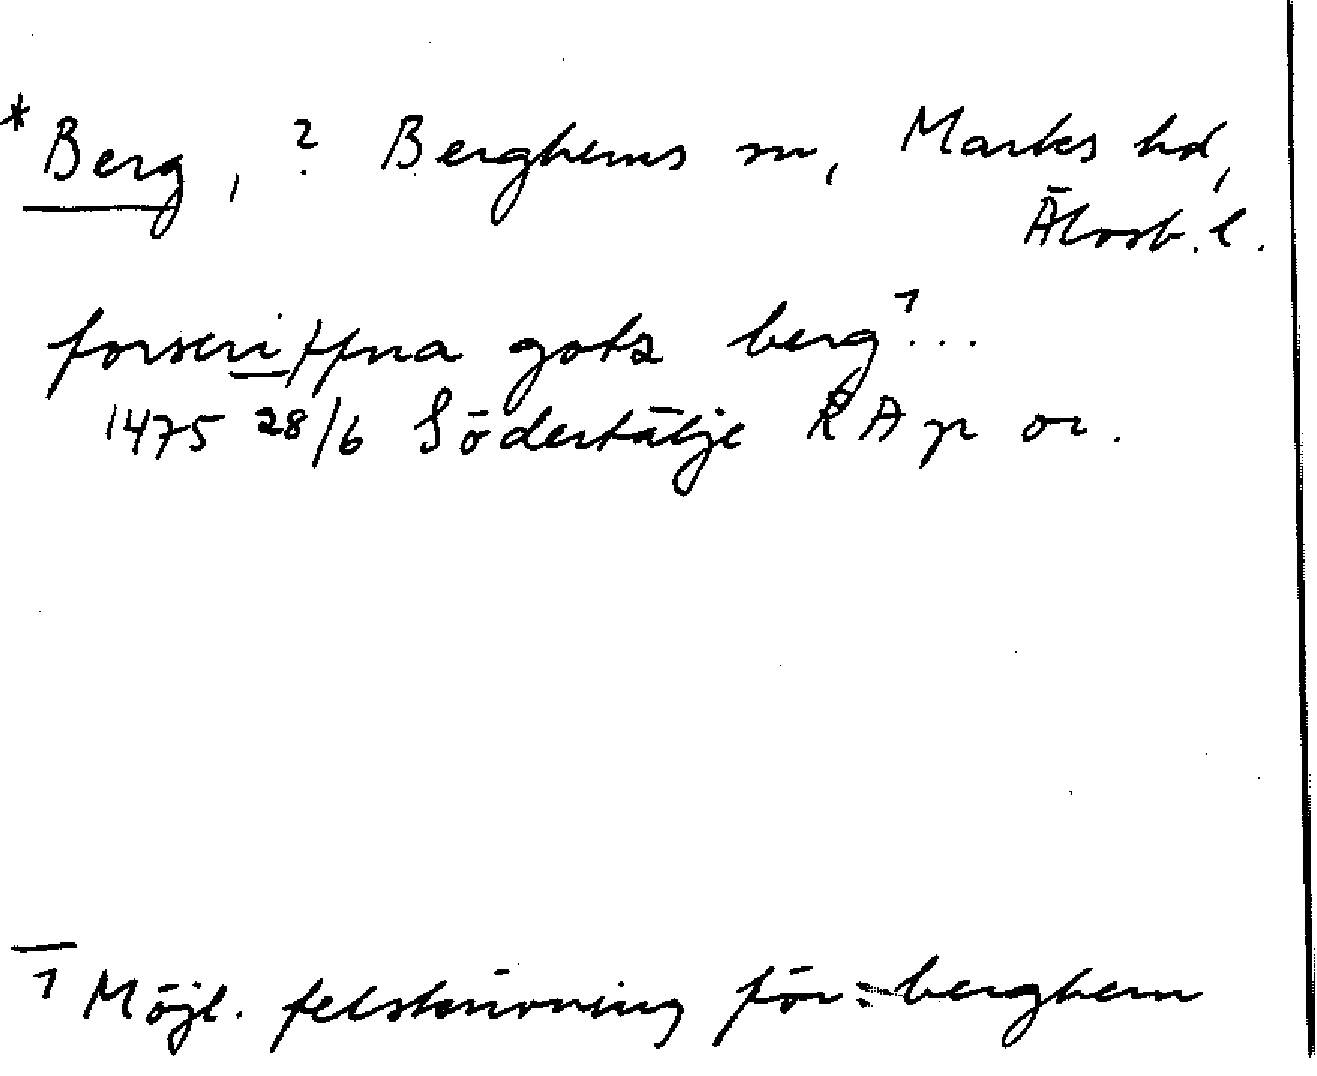 *Berg, ? Berghems sn, Marks hd,
Älvsb. l.
forscriffna gotz berg¹...
1475 28/6 Södertälje RAp or.
¹ Möjl. felskrivning för: berghem